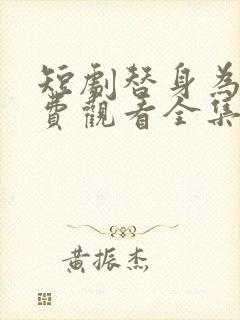 短劇替身為
費觀看全集
黄振杰